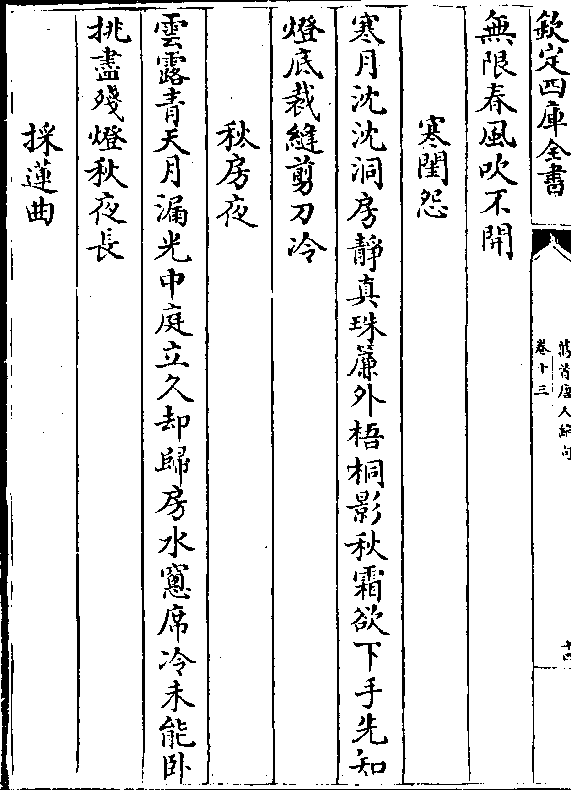 欽定四庫全書
萬首唐人絶句
卷十三
十四
無限春風吹不開
寒閨怨
寒月沈沈洞房靜真珠簾外梧桐影秋霜欲下手先知
燈底裁縫剪刀冷
秋房夜
雲露青天月漏光中庭立久却歸房水窻席冷未能卧
挑盡殘燈秋夜長
採蓮曲